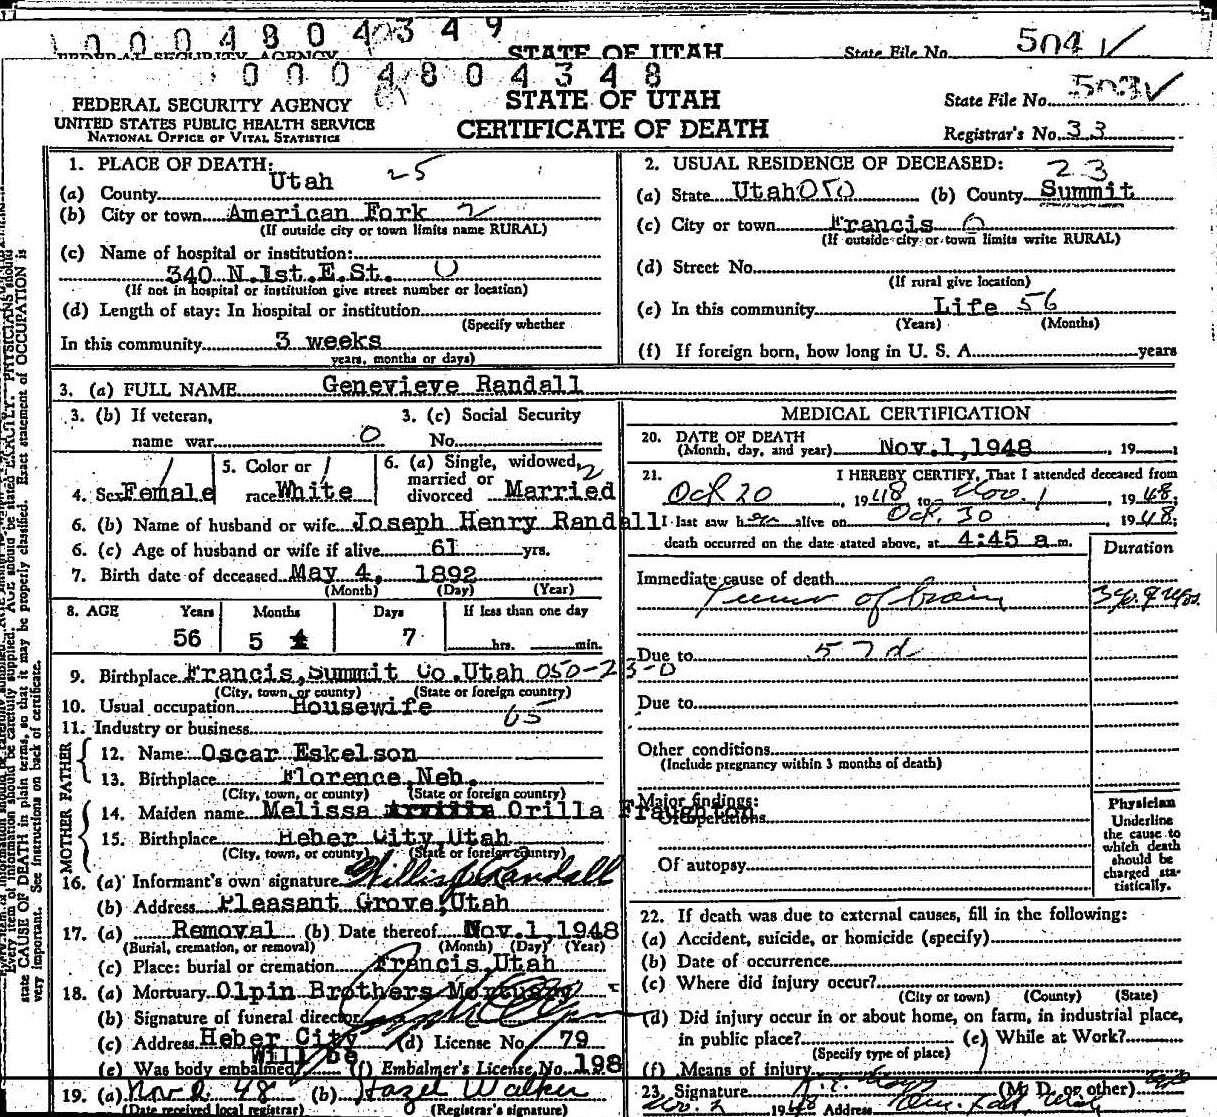 000480 4349
FEDERAL SECURITY AGENCY STATE OF UTAH State File No. 504 ✓
000480 4348
FEDERAL SECURITY AGENCY
UNITED STATES PUBLIC HEALTH SERVICE
NATIONAL OFFICE OF VITAL STATISTICS
STATE OF UTAH
CERTIFICATE OF DEATH
State File No. 503 ✓
Registrar's No. 33
1. PLACE OF DEATH: 25
(a) County Utah
(b) City or town American Fork 2
(If outside city or town limits name RURAL)
(c) Name of hospital or institution:
340 N.1st.E.St. 0
(If not in hospital or institution give street number or location)
(d) Length of stay: In hospital or institution
(Specify whether
In this community 3 weeks
years, months or days)
2. USUAL RESIDENCE OF DECEASED: 23
(a) State Utah 050 (b) County Summit
(c) City or town Francis 0
(If outside city or town limits write RURAL)
(d) Street No.
(If rural give location)
(e) In this community Life 56
(Years) (Months)
(f) If foreign born, how long in U. S. A. years
3. (a) FULL NAME Genevieve Randall
3. (b) If veteran,
name war 0
3. (c) Social Security
No.
4. Sex Female 1
5. Color or
race White 1
6. (a) Single, widowed,
married or
divorced Married 2
6. (b) Name of husband or wife Joseph Henry Randall
6. (c) Age of husband or wife if alive 61 yrs.
7. Birth date of deceased May 4, 1892
(Month) (Day) (Year)
8. AGE Years Months Days If less than one day
56 5 4 7 hrs. min.
9. Birthplace Francis, Summit Co. Utah 050-23-0
(City, town, or county) (State or foreign country)
10. Usual occupation Housewife
65
11. Industry or business
FATHER
12. Name Oscar Eskelson
13. Birthplace Florence, Neb.
(City, town, or county) (State or foreign country)
MOTHER
14. Maiden name Melissa Orilla Fraughton
15. Birthplace Heber City, Utah
(City, town, or county) (State or foreign country)
16. (a) Informant's own signature Willis J Randall
(b) Address Pleasant Grove, Utah
17. (a) Removal (b) Date thereof Nov.1,1948
(Burial, cremation, or removal) (Month) (Day) (Year)
(c) Place: burial or cremation Francis, Utah
18. (a) Mortuary Olpin Brothers Mortuary
(b) Signature of funeral director
(c) Address Heber City (d) License No. 79
Will be
(e) Was body embalmed? (f) Embalmer's License No. 198
19. (a) Nov 2 48 (b) Hazel Walker
(Date received local registrar) (Registrar's signature)
MEDICAL CERTIFICATION
20. DATE OF DEATH
(Month, day, and year) Nov.1,1948, 19
21. I HEREBY CERTIFY, That I attended deceased from
Oct 20, 1948 to Nov. 1, 1948;
I last saw her alive on Oct. 30, 1948;
death occurred on the date stated above, at 4:45 a m.
Duration
Immediate cause of death
Tumor of brain
Due to 57d
Due to
Other conditions
(Include pregnancy within 3 months of death)
Major findings:
Of operations
Of autopsy
Physician
Underline
the cause to
which death
should be
charged sta-
tistically.
22. If death was due to external causes, fill in the following:
(a) Accident, suicide, or homicide (specify)
(b) Date of occurrence
(c) Where did injury occur?
(City or town) (County) (State)
(d) Did injury occur in or about home, on farm, in industrial place,
in public place? (e) While at Work?
(Specify type of place)
(f) Means of injury
23. Signature (M. D. or other)
Nov. 2 1948 Address
state CAUSE OF DEATH in plain terms, so that it may be properly classified. Exact statement of OCCUPATION is
very important. See instructions on back of certificate.